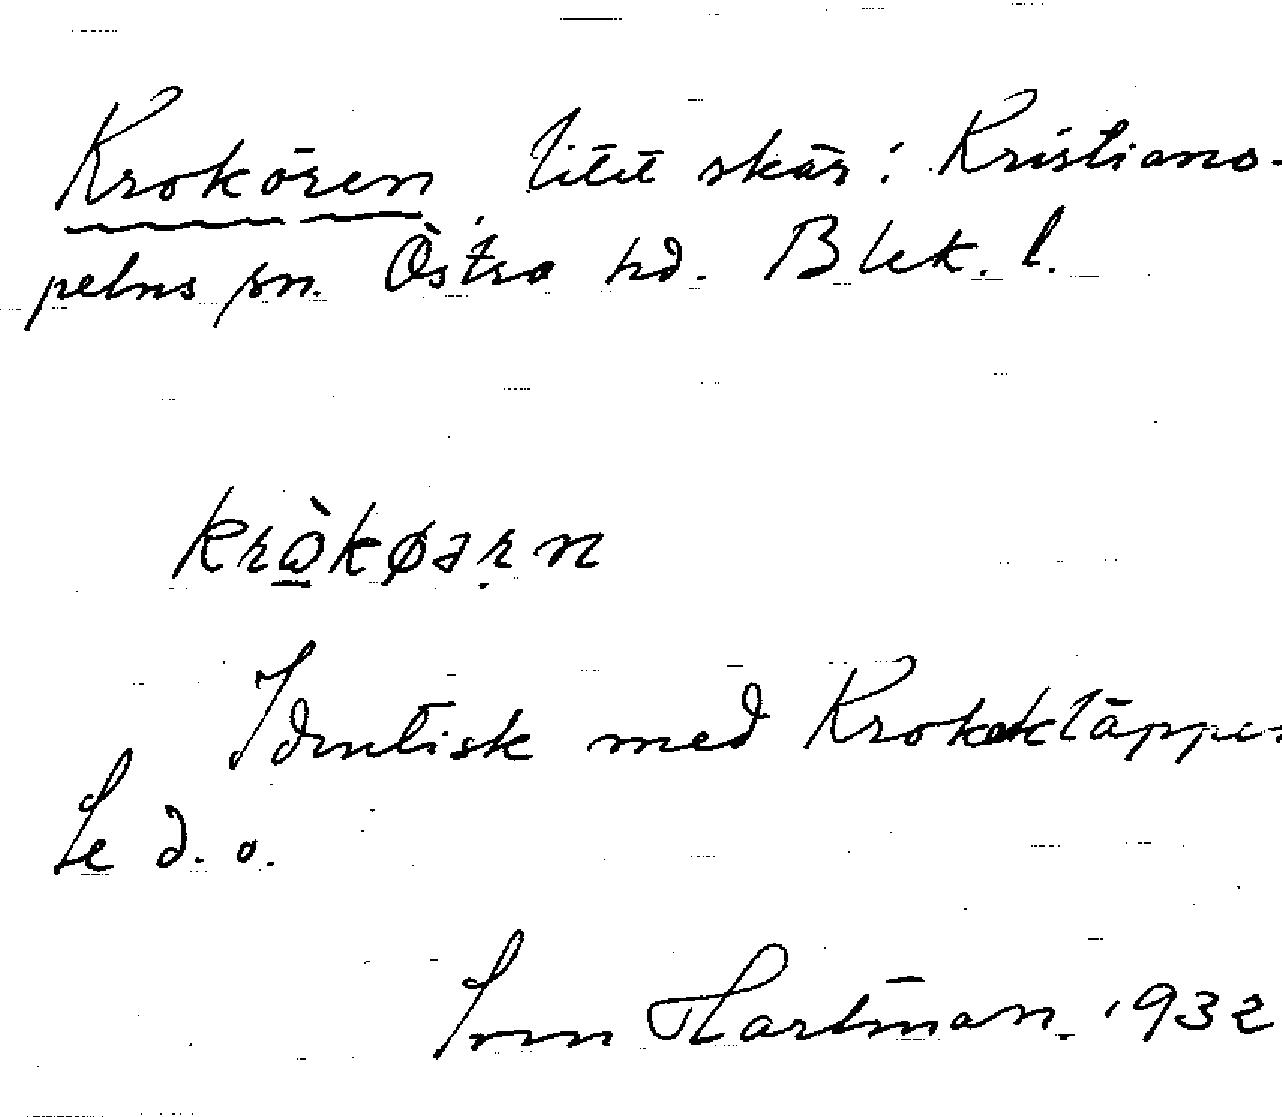 Krokören, litet skär i Kristiano-
pelns sn. Östra hd. Blek. l.
kròkøərn
Identisk med Krokekläppen
Se d. o.
Hartman. 1932